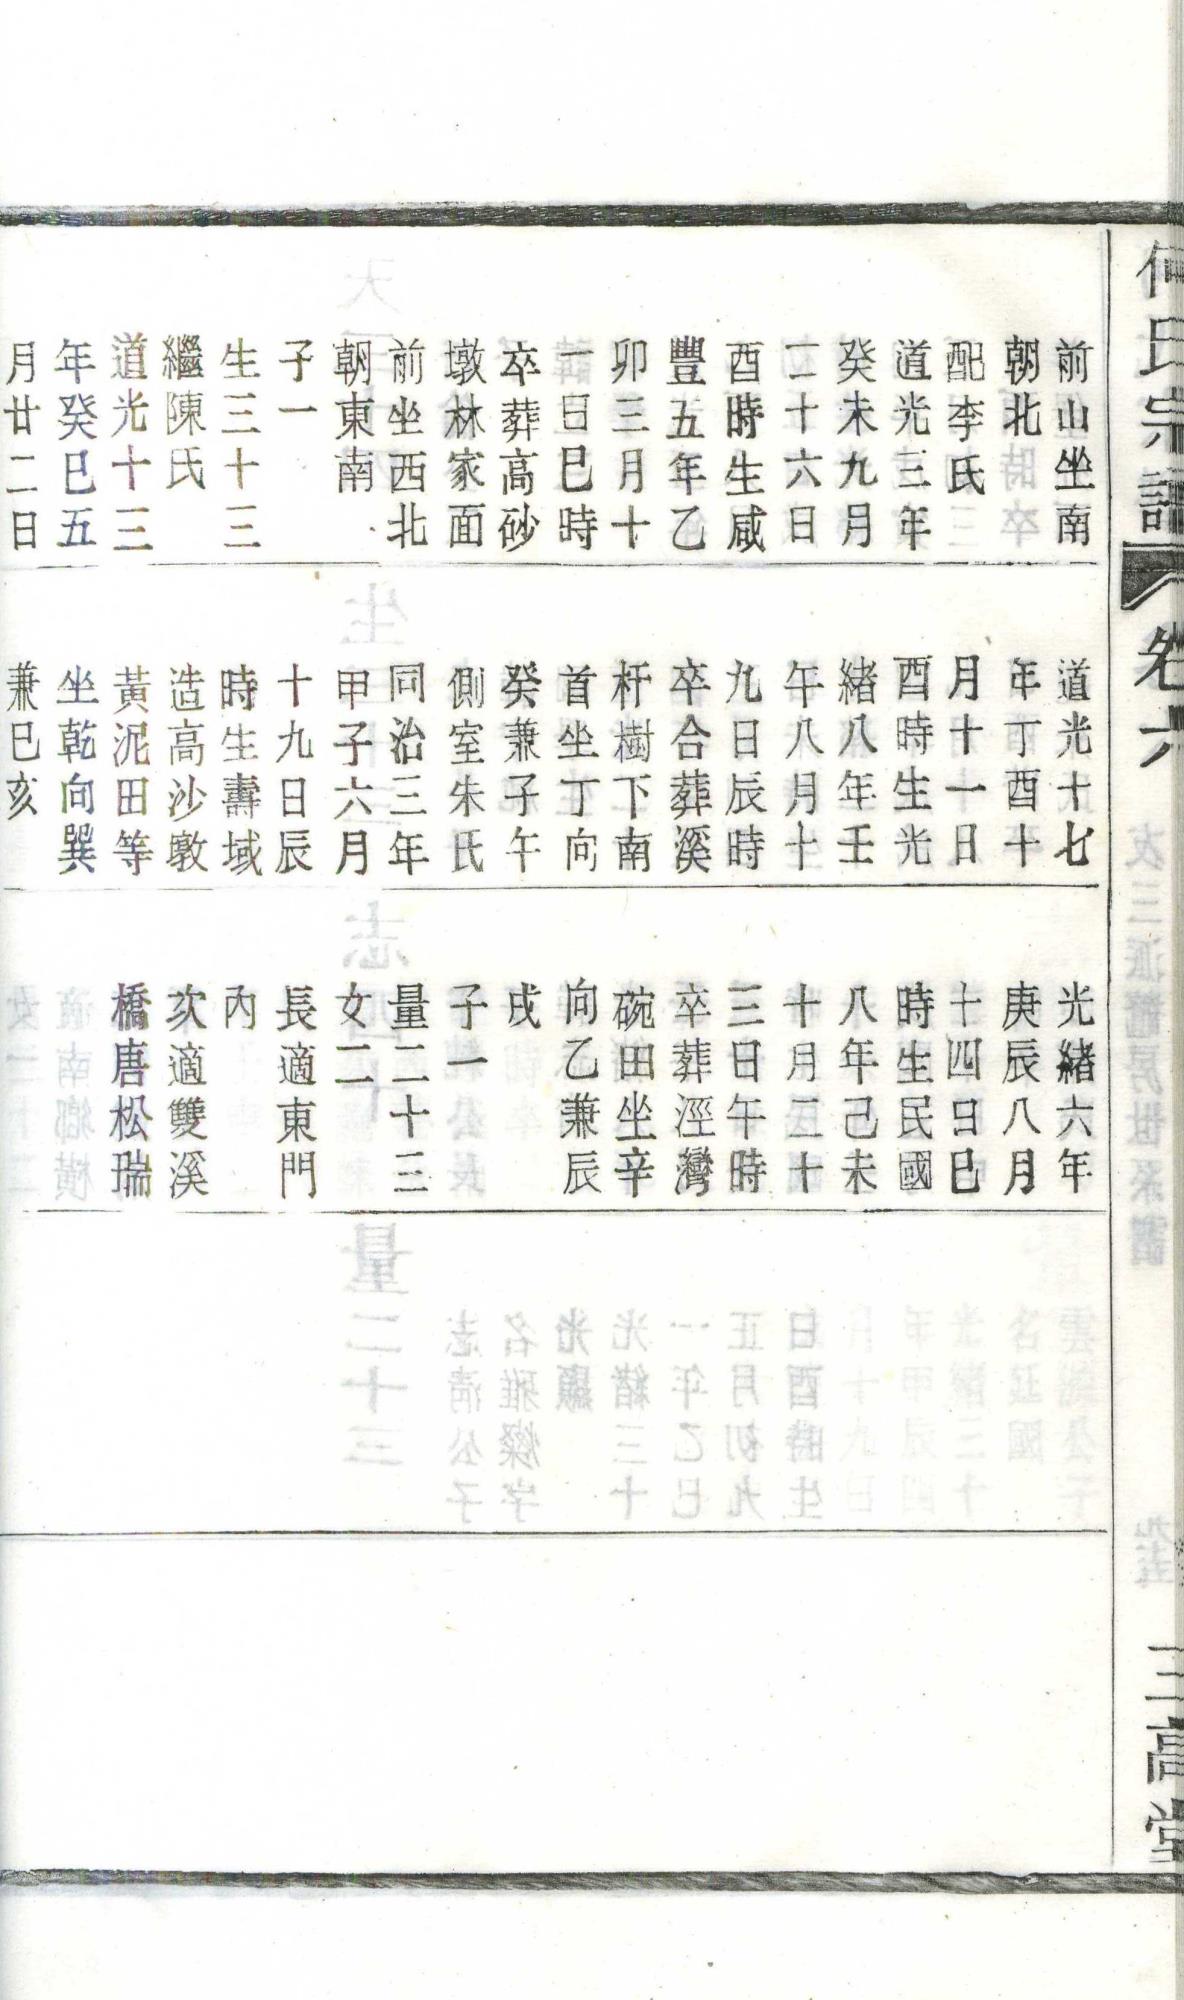 何氏宗譜
卷六
三高堂
前山坐南
朝北
配李氏
道光三年
癸未九月
二十六日
酉時生咸
豐五年乙
卯三月十
一日巳時
卒葬高砂
墩林家面
前坐西北
朝東南
子一
生三十三
繼陳氏
道光十三
年癸巳五
月廿二日
道光十七
年丁酉十
月十一日
酉時生光
緒八年壬
午八月十
九日辰時
卒合葬溪
杆樹下南
首坐丁向
癸兼子午
側室朱氏
同治三年
甲子六月
十九日辰
時生壽域
造高沙墩
黃泥田等
坐乾向巽
兼巳亥
光緒六年
庚辰八月
十四日巳
時生民國
八年己未
十月二十
三日午時
卒葬涇灣
碗田坐辛
向乙兼辰
戌
子一
量二十三
女二
長適東門
內
次適雙溪
橋唐松瑞